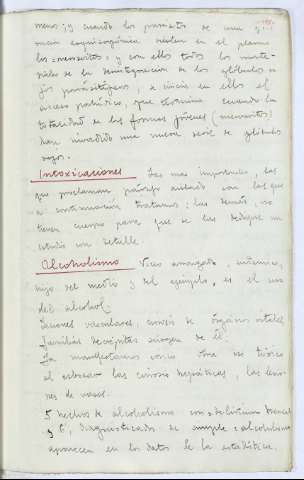 menos; y cuando los parásitos de una g
man esquizogónica vierten en el plasma
los "merozoitos" y con ellos todos los mate-
riales de la desintegración de los glóbulos ro-
jos parasitíferos, se inicia en ellos el
acceso palúdico, que termina cuando la
totalidad de las formas jóvenes (merozoitos)
han invadido una nueva serie de glóbulos
rojos.
Intoxicaciones Las más importantes, las
que proclaman párrafo aislado son las que
a continuación tratamos; las demás, no
tienen cuerpo para que se las dedique un
estudio con detalle.
Alcoholismo Vicio arraigado,
hijo del medio y del ejemplo, es el uso
del alcohol.
Lesiones vasculares, de órganos vitales,
familias surgen de él.
Se manifestamos
el esbozar las cirrosis hepáticas, las lesio-
nes de vasos.
5 hechos de alcoholismo con delirium tremens
y 6, diagnosticados de simple alcoholismo
aparecen en los datos de la estadística.